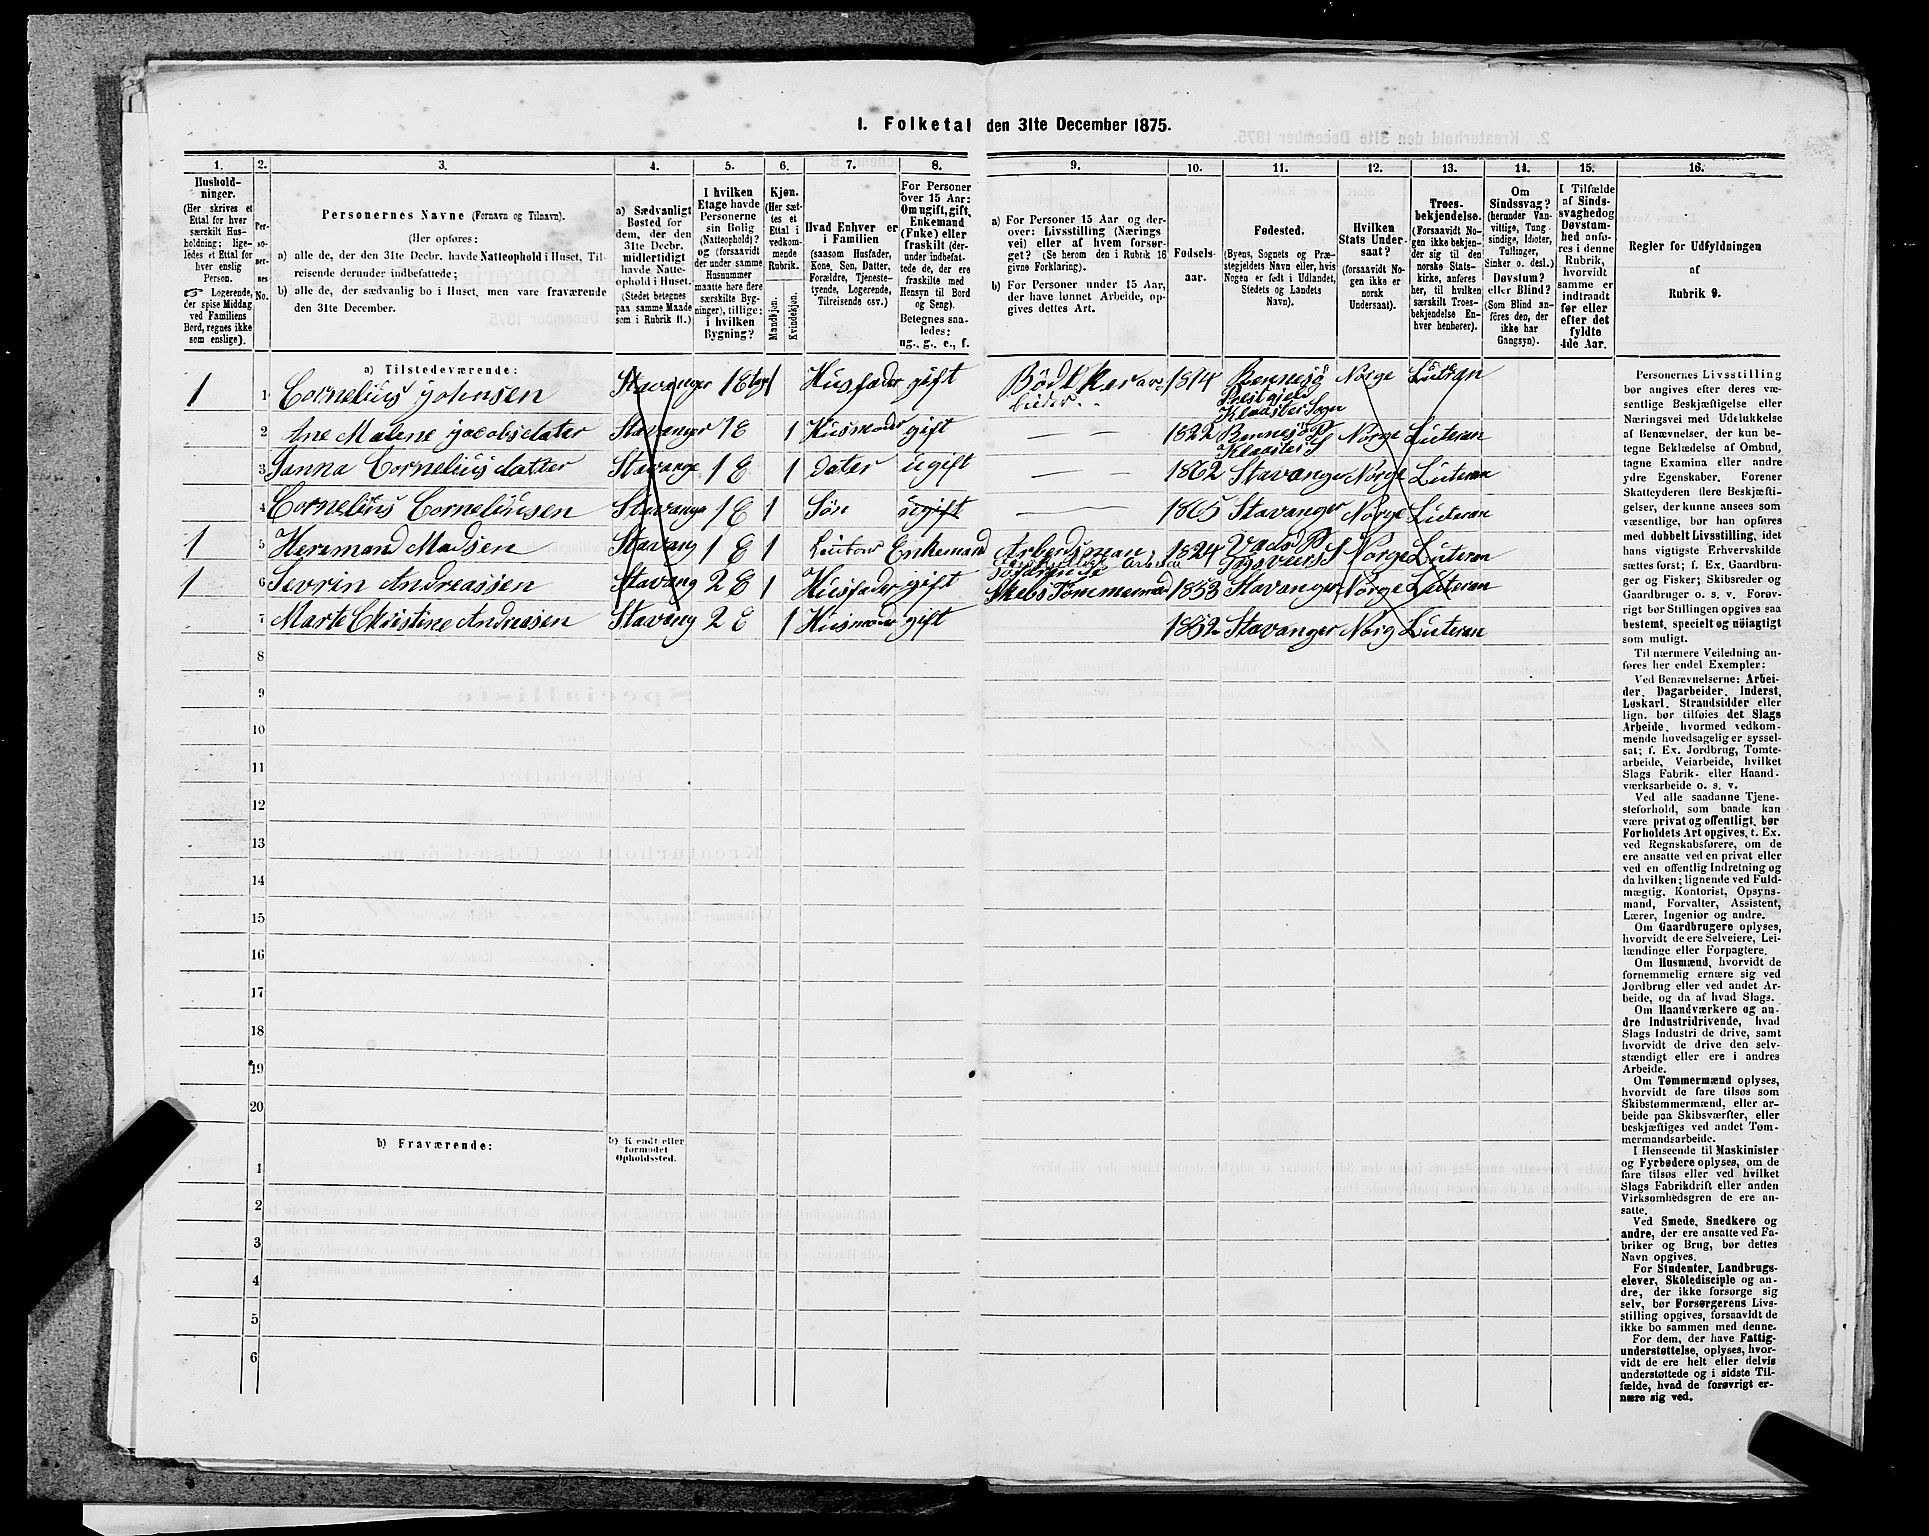 1. Folketal den 31te December 1875.
1. 2. 3. 4. 5. 6. 7. 8. 9. 10. 11. 12. 13. 14. 15. 16.
Hushold-
ninger.
(Her skrives et
Ettal for hver
særskilt Hus-
holdning; lige-
ledes et Ettal for
hver enslig
Person.
☞ Logerende,
der spise Middag
ved Familiens
Bord, regnes ikke
som enslige).
Per-
so-
ner-
nes
No.
Personernes Navne (Fornavn og Tilnavn).
(Her opføres:
a) alle de, der den 31te Decbr. havde Natteophold i Huset, Til-
reisende derunder indbefattede;
b) alle de, der sædvanlig bo i Huset, men vare fraværende
den 31te December.
a) Sædvanligt
Bosted for
dem, der den
31te Decbr.
midlertidigt
havde Natte-
ophold i Huset.
(Stedet betegnes
paa samme Maade
som i Rubrik 11.)
I hvilken
Etage havde
Personerne
sin Bolig
(Natteophold)?
(forsaavidt
der under samme
Husnummer
maatte høre flere
særskilte Byg-
ninger), tillige:
i hvilken
Bygning?
Kjøn.
(Her sæt-
tes et
Ettal i
vedkom-
mende
Rubrik.
Mandkjøn.
Kvindekjøn.
Hvad Enhver er
i Familien
(saasom Husfader,
Kone, Søn, Datter,
Forældre, Tjeneste-
tyende, Logerende,
Tilreisende osv.)
For Personer
over 15 Aar:
Om ugift, gift,
Enkemand
(Enke) eller
fraskilt (der-
under indbefat-
tede de, der ere
fraskilte med
Hensyn til Bord
og Seng).
Betegnes saa-
ledes:
ug., g., e., f.
a) For Personer 15 Aar og der-
over: Livsstilling (Nærings
vei) eller af hvem forsør-
get? (Se herom den i Rubrik 16
givne Forklaring).
b) For Personer under 15 Aar,
der have lønnet Arbeide, op-
gives dettes Art.
Fødsels-
aar.
Fødested.
(Byens, Sognets og Præ-
stegjeldets Navn eller, hvis
Nogen er født i Udlandet,
Stedets og Landets
Navn).
Hvilken
Stats Under-
saat?
(forsaavidt No-
gen ikke er
norsk
Undersaat).
Troes-
bekjendelse.
(Forsaavidt No-
gen ikke bekjen-
der sig til den
norske Stats-
kirke, anføres
her, til hvilken
særskilt Troes-
bekjendelse En-
hver henhører).
Om
Sindssvag?
(herunder Van-
vittige, Tung
sindige, Idioter,
Tullinger,
Sinker o. desl.)
Døvstum?
eller Blind?
(Som Blind an-
føres den, der
ikke har
Gangsyn).
I Tilfælde
af Sinds-
svaghed og
Døvstum-
hed anfø-
res i denne
Rubrik,
hvorvidt
samme er
indtraadt
før eller
efter det
fyldte
4de Aar.
Regler for Udfyldningen
af
Rubrik 9.
a) Tilstedeværende:
1 1 Cornelius Johnsen Stavanger 1 Etage 1 Husfader gift Bödtker 1814 Rennesö Norge Luteran
Prestgjeld
Klooster Sogn
2 Ane Malene Jacobsdater Stavanger 1 E 1 Husmoder gift — — 1822 Rennesö P Norge Luteran
Klooster S
3 Janna Cornelius datter Stavange 1 E 1 dater ugift — — 1862 Stavanger Norge Luteran
4 Cornelius Corneliusen Stavange 1 E 1 Sön ugift — — 1865 Stavanger Norge Luteran
1 5 Heremand Madsen Stavang 1 E 1 Enkemand Arbeidsmand 1824 Norge Luteran
1 6 Sevrin Andreassen Stavang 2 E 1 Husfader gift Skibs Tömmermand 1853 Stavanger Norge Luteran
7 Marte Christine Andreasen Stavang 2 E 1 Husmoder gift 1852 Stavanger Norg Luteran
8
9
10
11
12
13
14
15
16
17
18
19
20
b) Fraværende:
b) Kjendt eller
formodet
Opholdssted.
1
2
3
4
5
6
Personernes Livsstilling
bør angives efter deres væ-
sentlige Beskjæftigelse eller
Næringsvei med Udelukkelse
af Benævnelser, der kun be-
tegne Beklædelse af Ombud,
tagne Examina eller andre
ydre Egenskaber. Forener
Skatteyderen flere Beskjæfti-
gelser, der kunne ansees som
væsentlige, bør han opføres
med dobbelt Livsstilling, idet
hans vigtigste Erhvervskilde
sættes først; f. Ex. Gaardbru-
ger og Fisker; Skibsreder og
Gaardbruger o. s. v. Forøv-
rigt bør Stillingen opgives saa
bestemt, specielt og nöiagtigt
som muligt.
Til nærmere Veiledning an-
føres her endel Exempler:
Ved Benævnelserne: Arbei-
der, Dagarbeider, Inderst,
Løskarl, Strandsidder eller
lign. bør tilføies det Slags
Arbeide, hvormed vedkom-
mende hovedsagelig er syssel-
sat; f. Ex. Jordbrug, Tomte-
arbeide, Veiarbeide, hvilket
Slags Fabrik- eller Haand-
værksarbeide o. s. v.
Ved alle saadanne Tjene-
steforhold, som baade kan
være privat og offentligt, bør
Forholdets Art opgives, t. Ex.
ved Regnskabsførere, om de
ere ansatte ved en privat eller
ved en offentlig Indretning og
da hvilken; lignende ved Fuld-
mægtig, Kontorist, Opsyns-
mand, Forvalter, Assistent,
Lærer, Ingeniør og andre.
Om Gaardbrugere oplyses,
hvorvidt de ere Selveiere, Lei-
lændinge eller Forpagtere.
Om Husmænd, hvorvidt de
fornemmelig ernære sig ved
Jordbrug eller ved andet Ar-
beide, og da af hvad Slags.
Om Haandværkere og an-
dre Industridrivende, hvad
Slags Industri de drive, samt
hvorvidt de drive den selv-
stændigt eller ere i andres
Arbeide.
Om Tømmermænd oplyses,
hvorvidt de fare tilsøs som
Skibstømmermænd, eller ar-
beide paa Skibsværfter, eller
beskjæftiges ved andet Tøm-
mermandsarbeide.
I Henseende til Maskinister
og Fyrbødere oplyses, om de
fare tilsøs eller ved hvilket
Slags Fabrikdrift eller anden
Virksomhedsgren de ere an-
satte.
Ved Smede, Snedkere og
andre, der ere ansatte ved Fa-
briker og Brug, bør dettes
Navn opgives.
For Studenter, Landbrugs-
elever, Skoledisciple og an-
dre, der ikke forsørge sig
selv, bør Forsørgerens Livs-
stilling opgives, forsaavidt de
ikke bo sammen med denne.
For dem, der have Fattig-
understøttelse, oplyses, hvor-
vidt de ere helt eller delvis
understøttede og i sidste Til-
fælde, hvad de forøvrigt er-
nære sig ved.